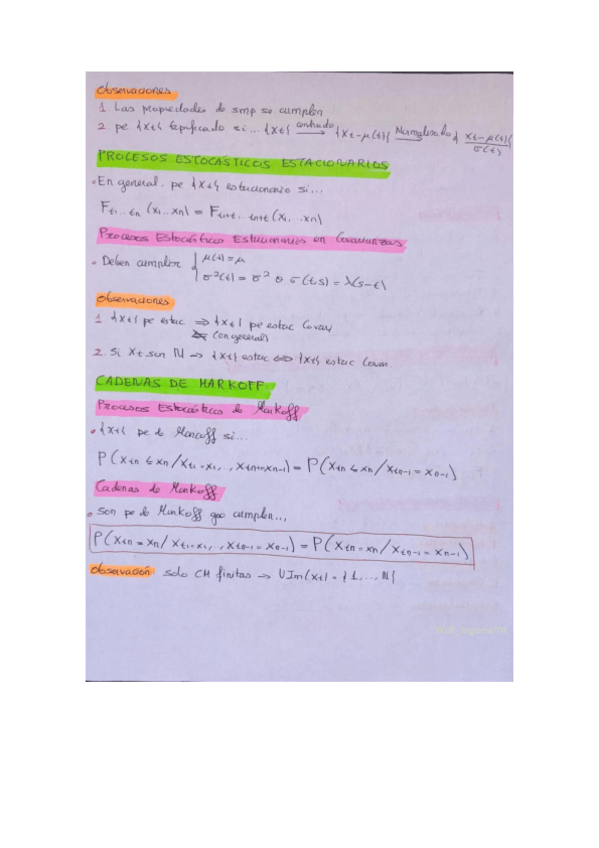 Observaciones
1. Las propiedades de smp se cumplen
2. pe {Xt} tipificado si... {Xt} centrado→ {Xt-μ(t)} Normalizado→ { Xt-μ(t) / σ(t) }
PROCESOS ESTOCÁSTICOS ESTACIONARIOS
• En general, pe {Xt} estacionario si...
Ft1...tn (x1...xn) = Ft1+t...tn+t (x1...xn)
Procesos Estocásticos Estacionarios en Covarianzas
• Deben cumplir { μ(t) = μ
σ²(t) = σ² o σ(t,s) = λ(s-t)
Observaciones
1 {Xt} pe estac ⇒ {Xt} pe estac Covar
⇍ (en general)
2. Si Xt son N ⇒ {Xt} estac ⇔ {Xt} estac Covar.
CADENAS DE MARKOFF
Procesos Estocásticos de Markoff
• {Xt} pe de Marcoff si...
P(Xtn ≤ xn / Xt1 = x1, ..., Xtn-1 = xn-1) = P(Xtn ≤ xn / Xtn-1 = xn-1)
Cadenas de Markoff
• Son pe de Markoff que cumplen...
P(Xtn = xn / Xt1 = x1, ..., Xtn-1 = xn-1) = P(Xtn = xn / Xtn-1 = xn-1)
Observación solo CM finitas → UIm(Xt) = {1, ..., N}